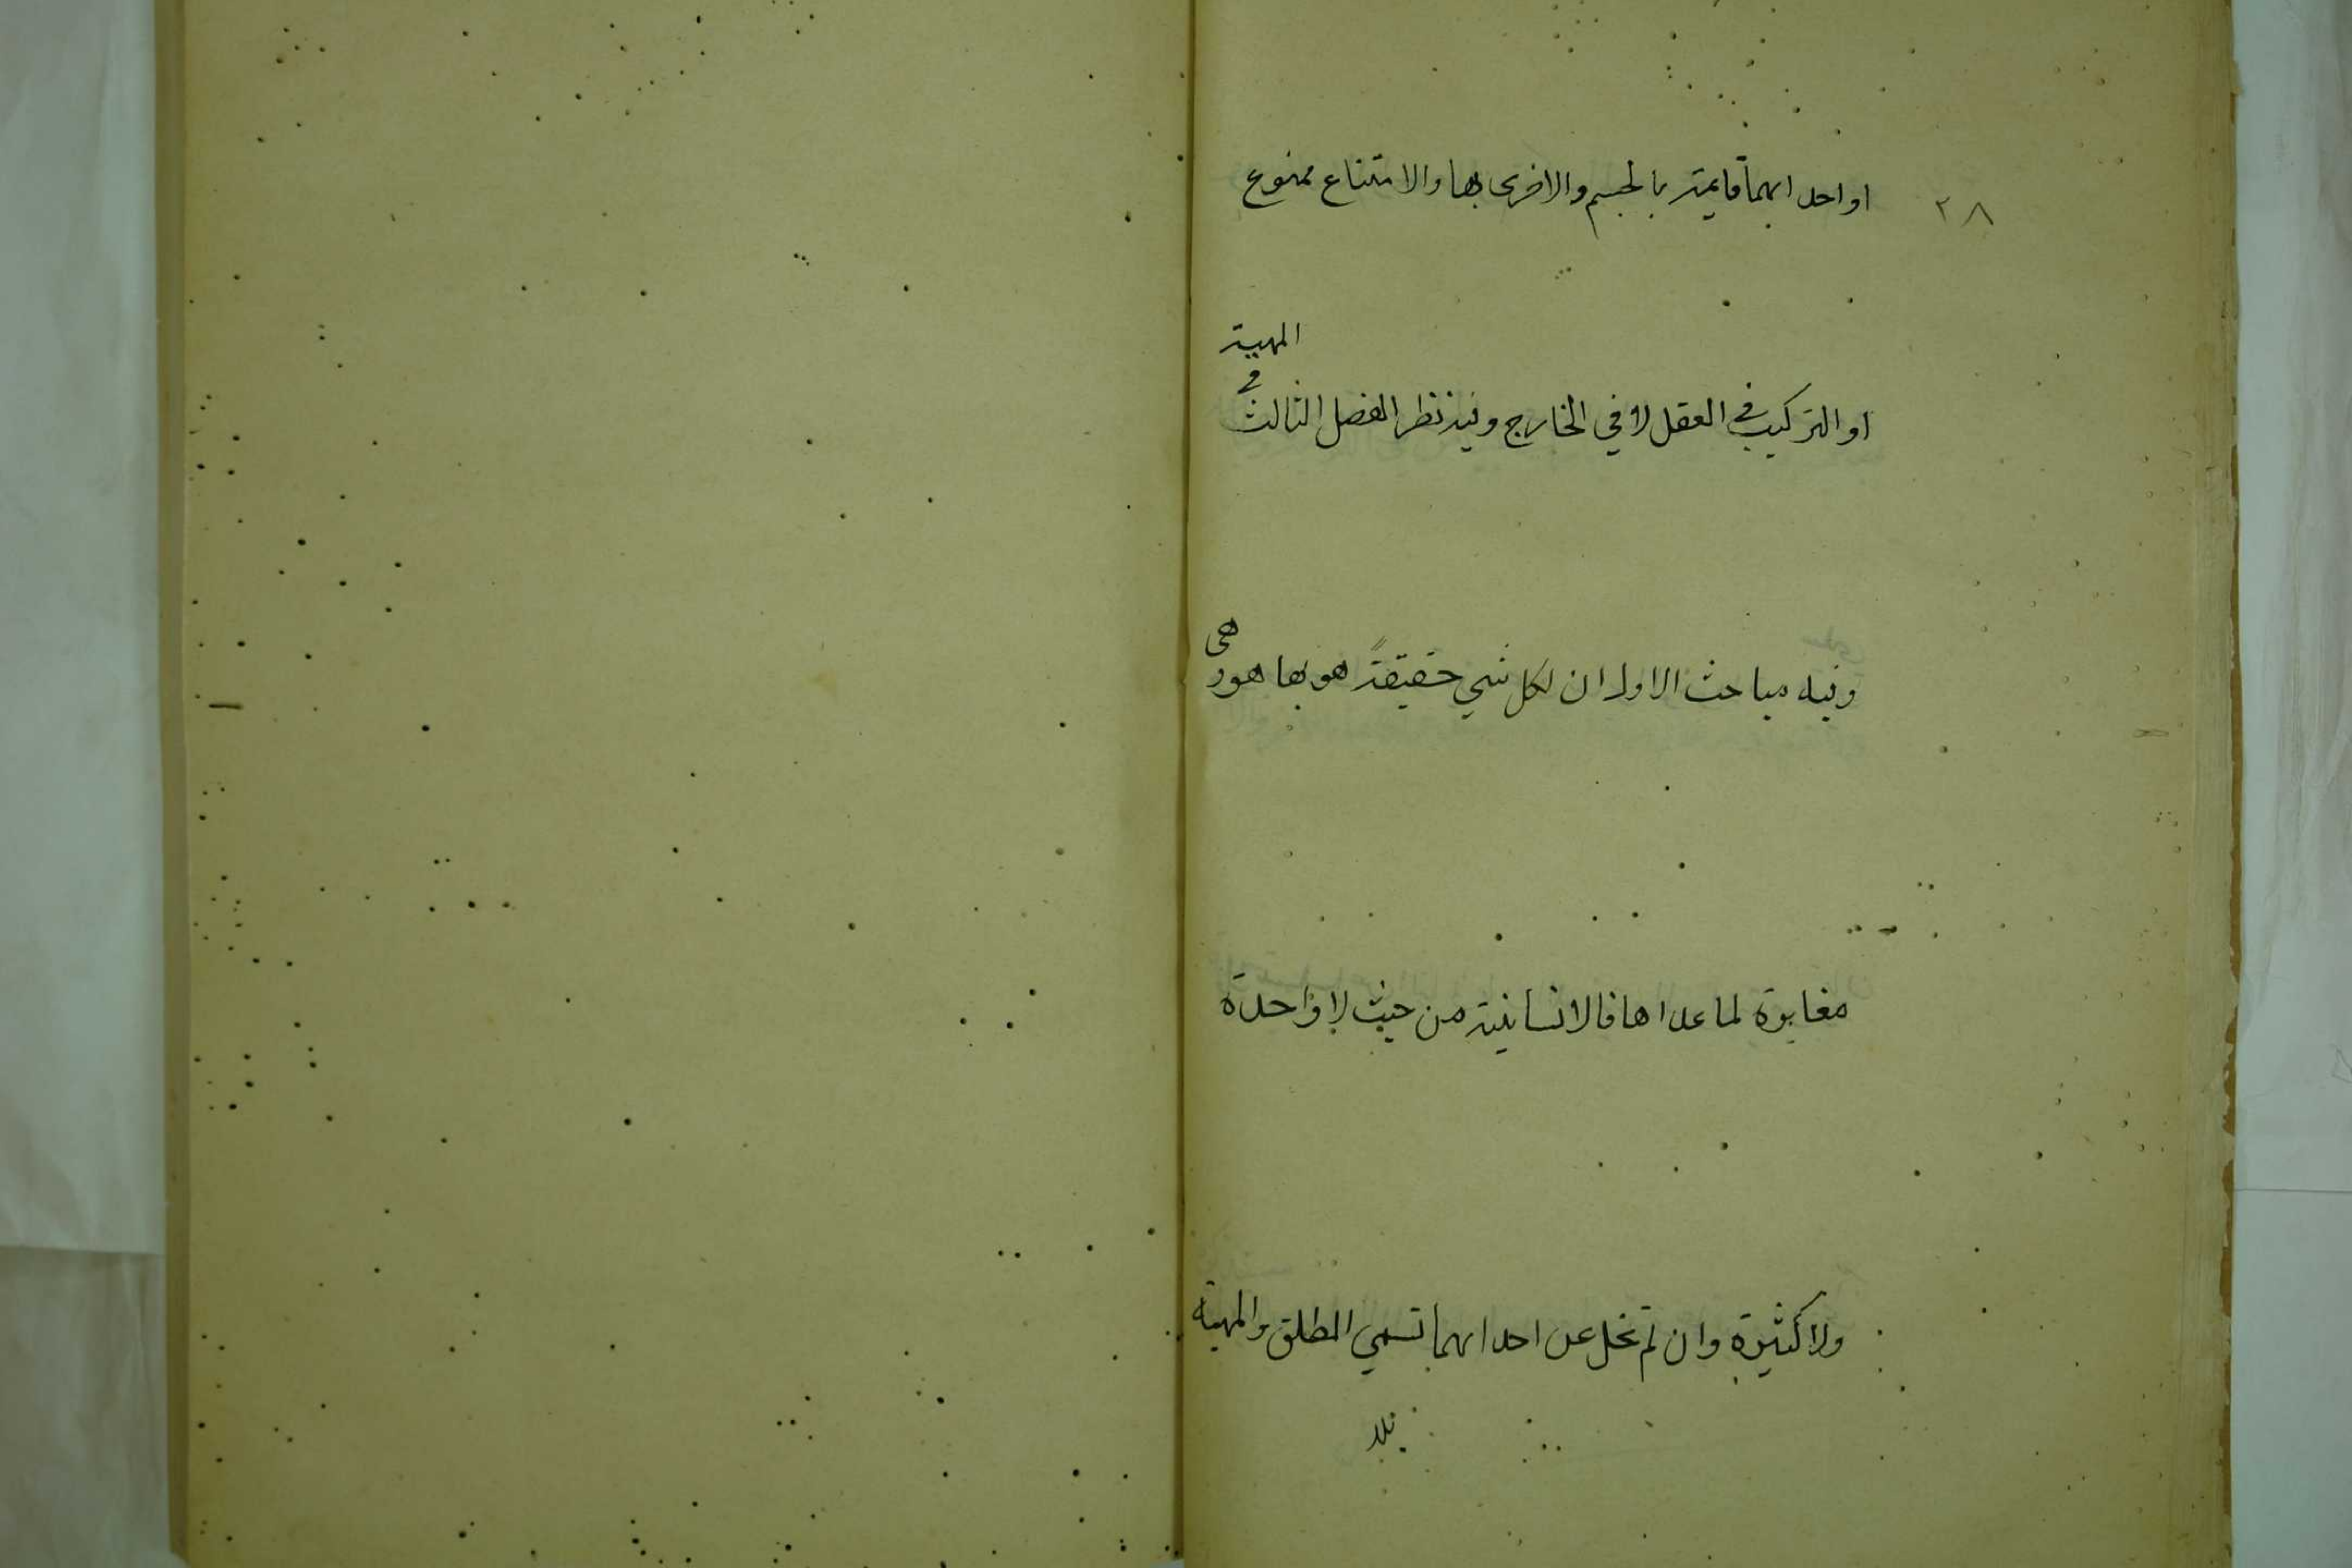 ٢٨
او احدايهما قايمة بالجسم والاخرى بها والامتناع ممنوع
او التركيب في العقل لا في الخارج وفيه نظر الفصل الثالث في المهية
وفيه مباحث الاول ان لكل شي حقيقةً هو بها هو وهى
مغايرة لما عداها فالانسانية من حيث لا واحدة
ولا كثيرة وان لم تخل عن احدايهما تسمي المطلق والمهية